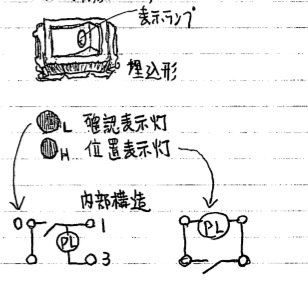 表示ランプ
埋込形
L 確認表示灯
H 位置表示灯
内部構造
0 1
PL PL
3